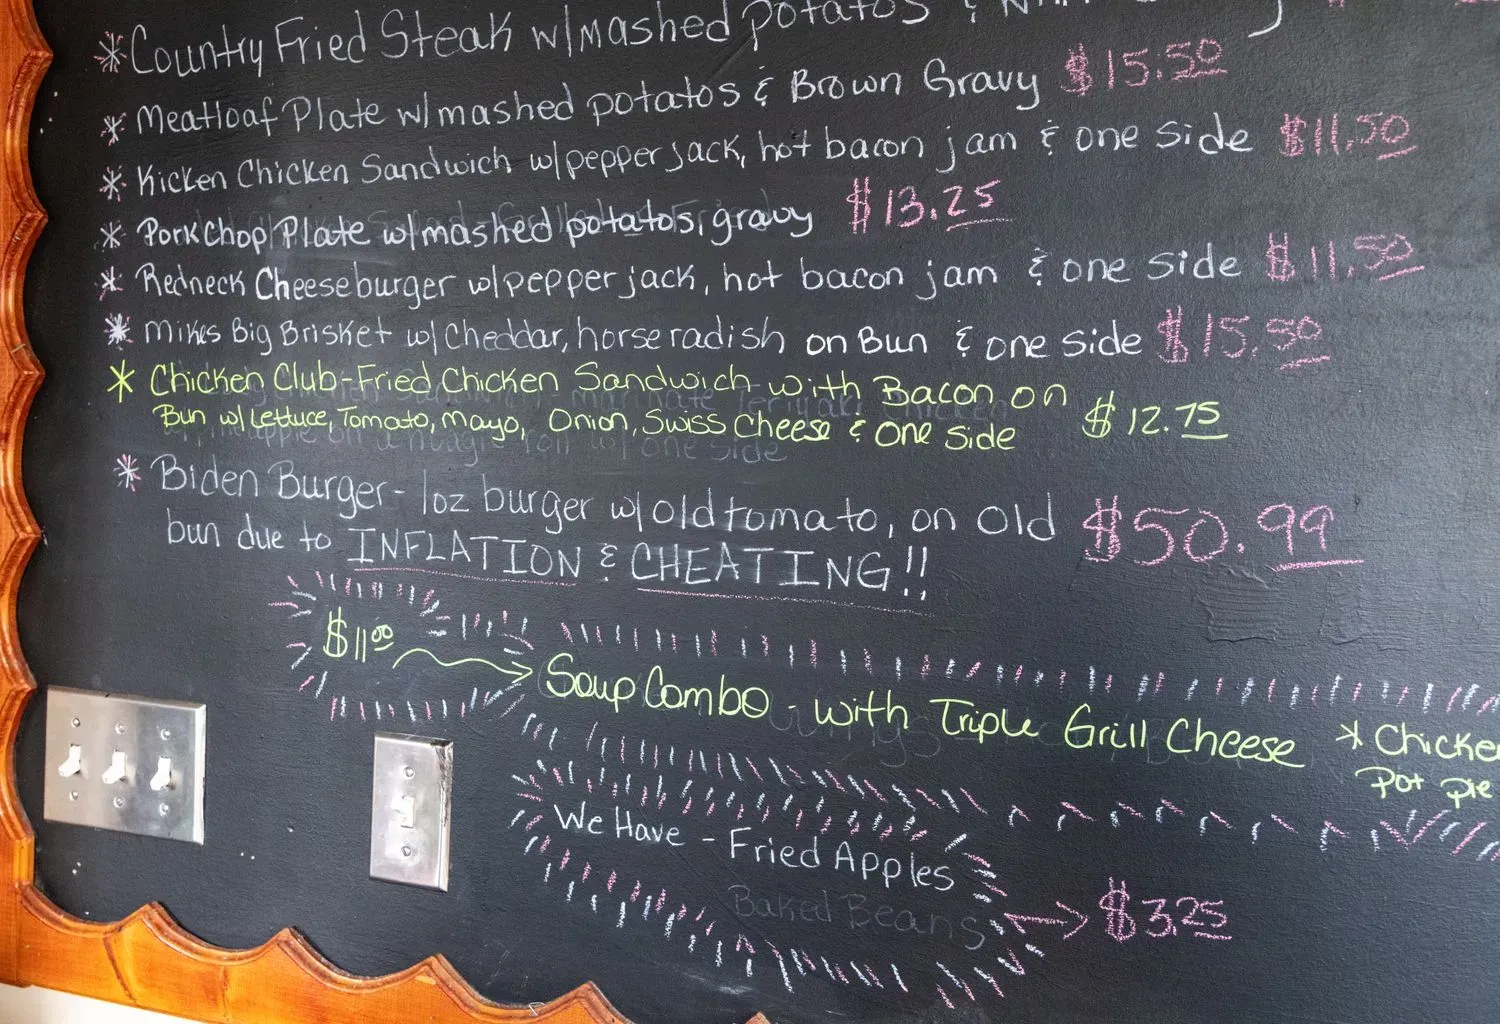 *Country Fried Steak w/mashed potatos &
* Meatloaf Plate w/mashed potatos & Brown Gravy $15.50
* Kicken Chicken Sandwich w/pepper jack, hot bacon jam & one side $11.50
* PorkChop Plate w/mashed potatos, gravy $13.25
* Redneck Cheeseburger w/pepper jack, hot bacon jam & one side $11.50
* Mikes Big Brisket w/Cheddar, horseradish on Bun & one side $15.50
* Chicken Club-Fried Chicken Sandwich with Bacon on
Bun w/Lettuce, Tomato, Mayo, Onion, Swiss Cheese & One Side $12.75
* Biden Burger - 1oz burger w/old tomato, on old
bun due to INFLATION & CHEATING!! $50.99
$11.00
Soup Combo - with Triple Grill Cheese
* Chicken
Pot Pie
We Have - Fried Apples
Baked Beans
$3.25